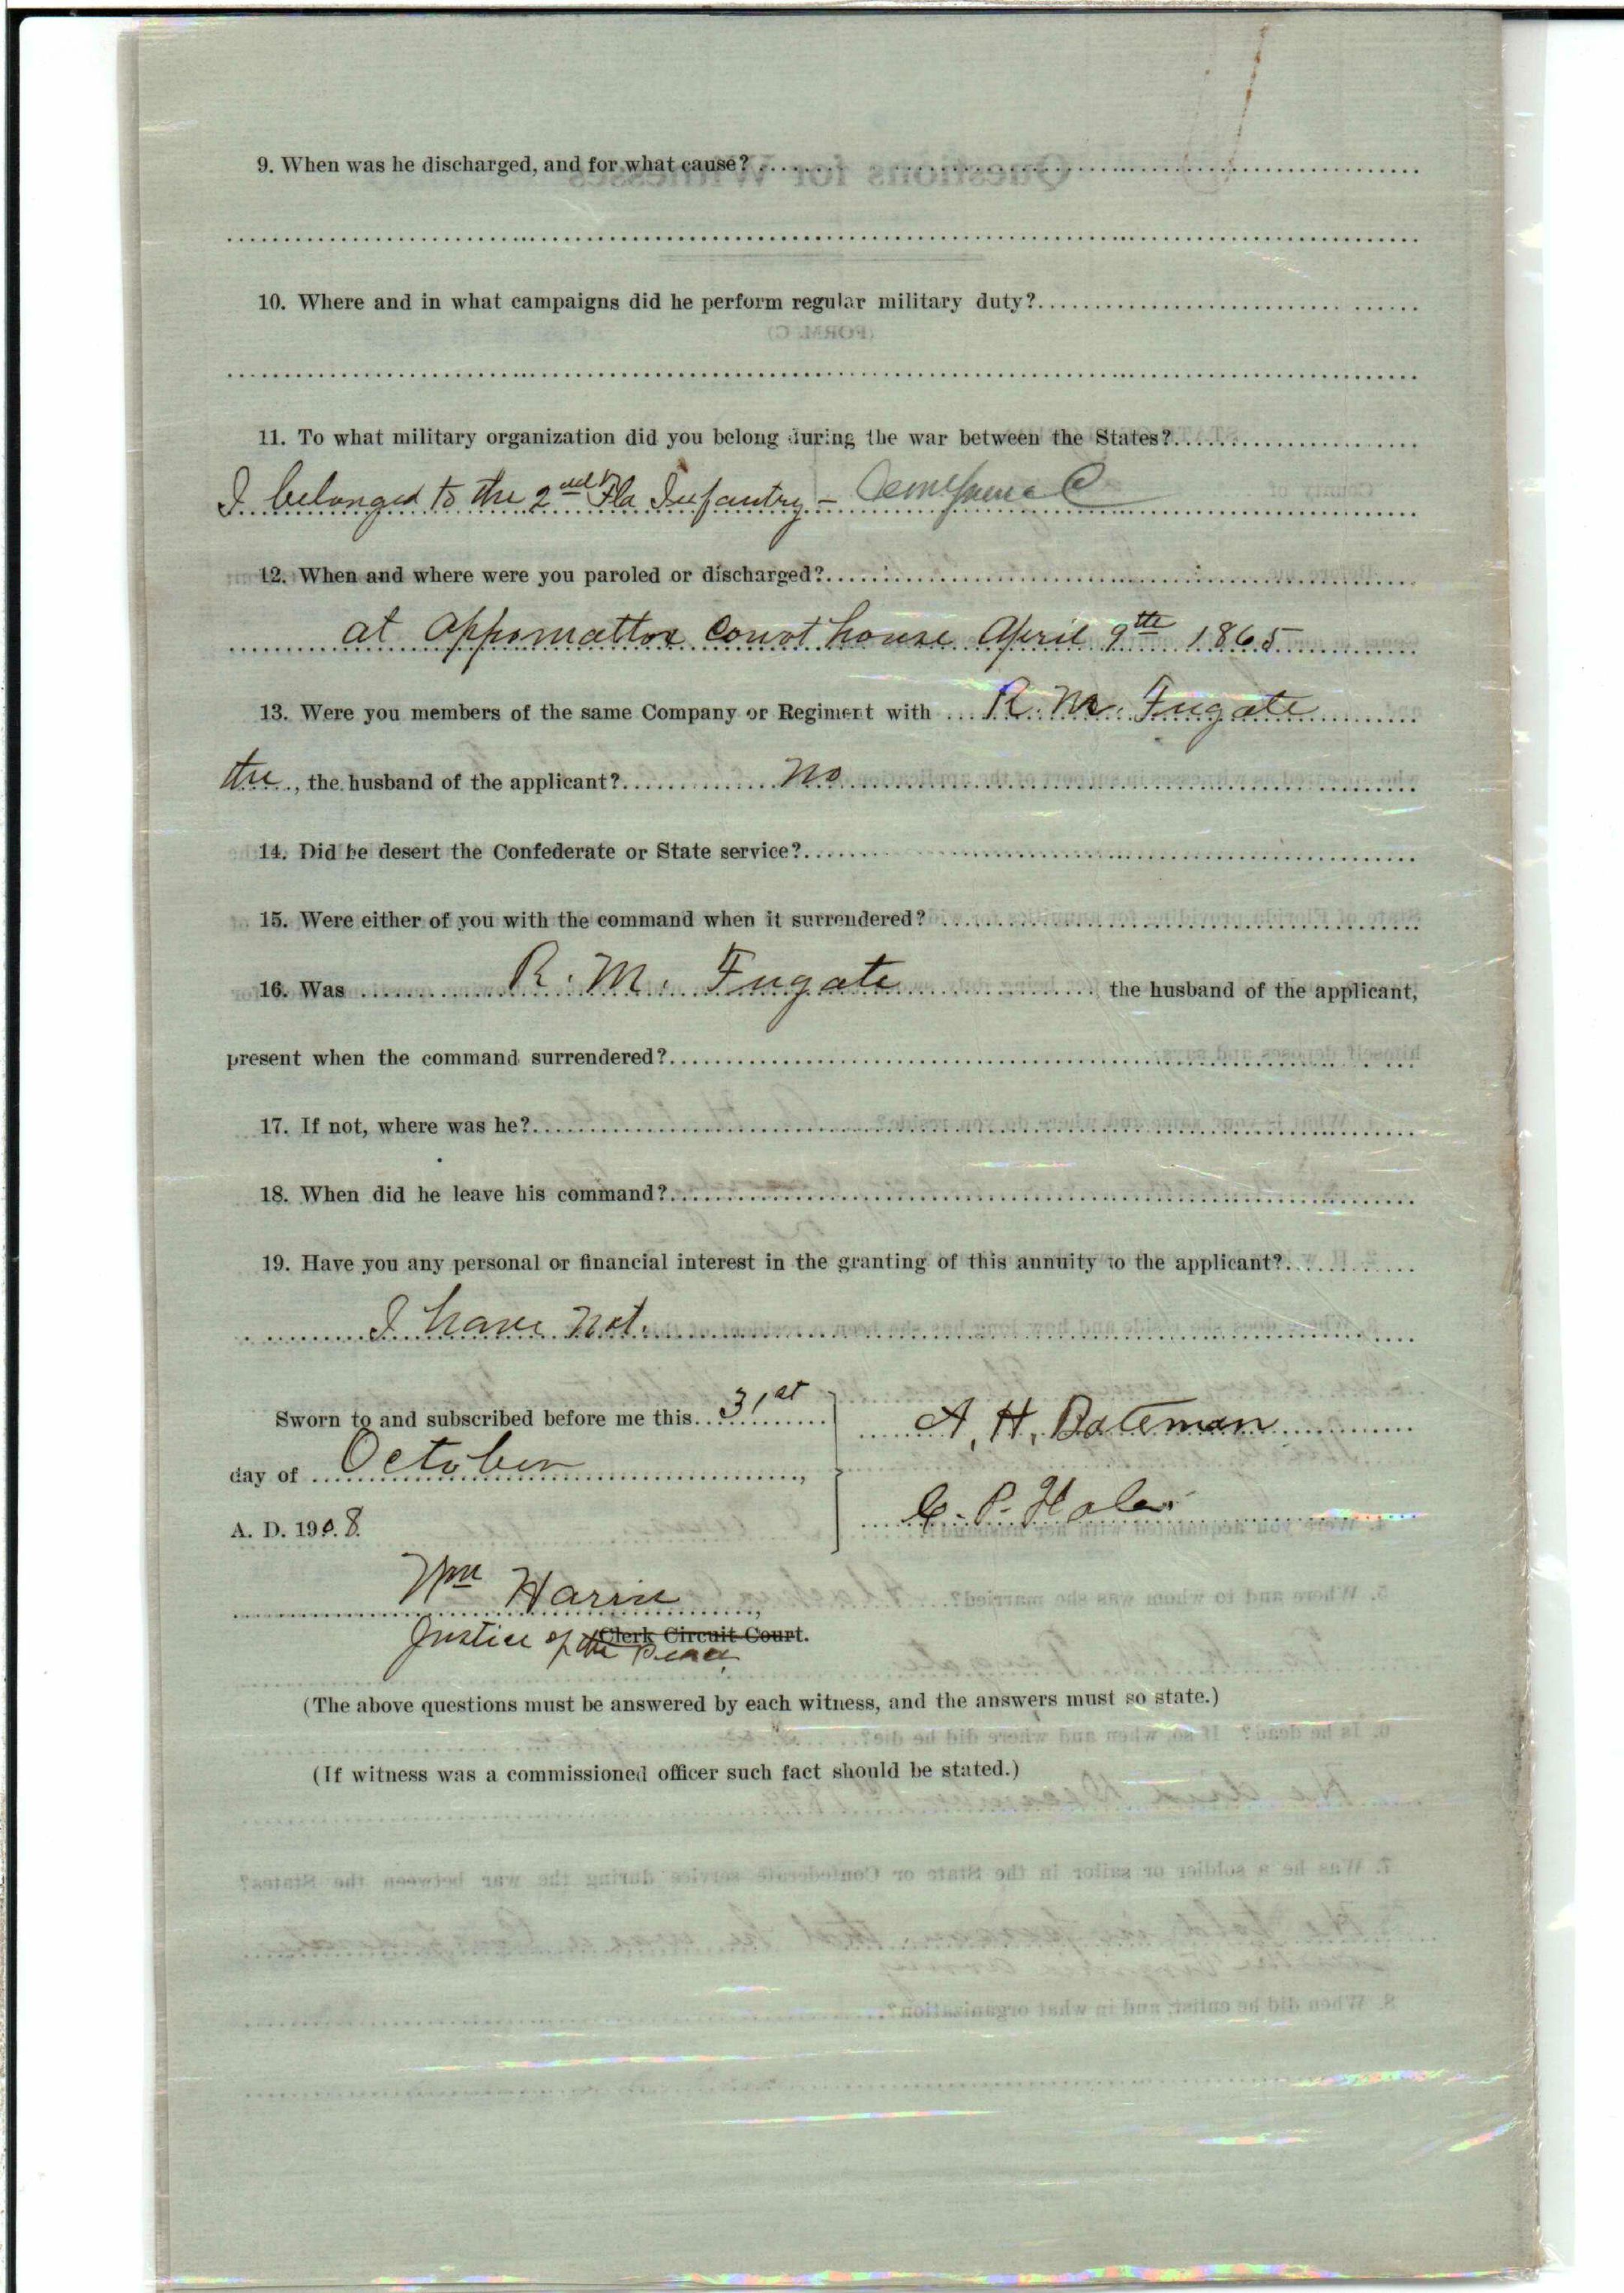 9. When was he discharged, and for what cause?
10. Where and in what campaigns did he perform regular military duty?
11. To what military organization did you belong during the war between the States?
I belonged to the 2nd Fla Infantry - Company C
12. When and where were you paroled or discharged?
at Appomattox Court house April 9th 1865
13. Were you members of the same Company or Regiment with R. M. Fugate
the, the husband of the applicant? No
14. Did he desert the Confederate or State service?
15. Were either of you with the command when it surrendered?
16. Was R. M. Fugate the husband of the applicant,
present when the command surrendered?
17. If not, where was he?
18. When did he leave his command?
19. Have you any personal or financial interest in the granting of this annuity to the applicant?
I have not.
Sworn to and subscribed before me this 31st
day of October,
A. D. 1908.
A. H. Bateman
C. P. Hale
Wm Harris,
Clerk Circuit Court.
Justice of the Peace
(The above questions must be answered by each witness, and the answers must so state.)
(If witness was a commissioned officer such fact should be stated.)